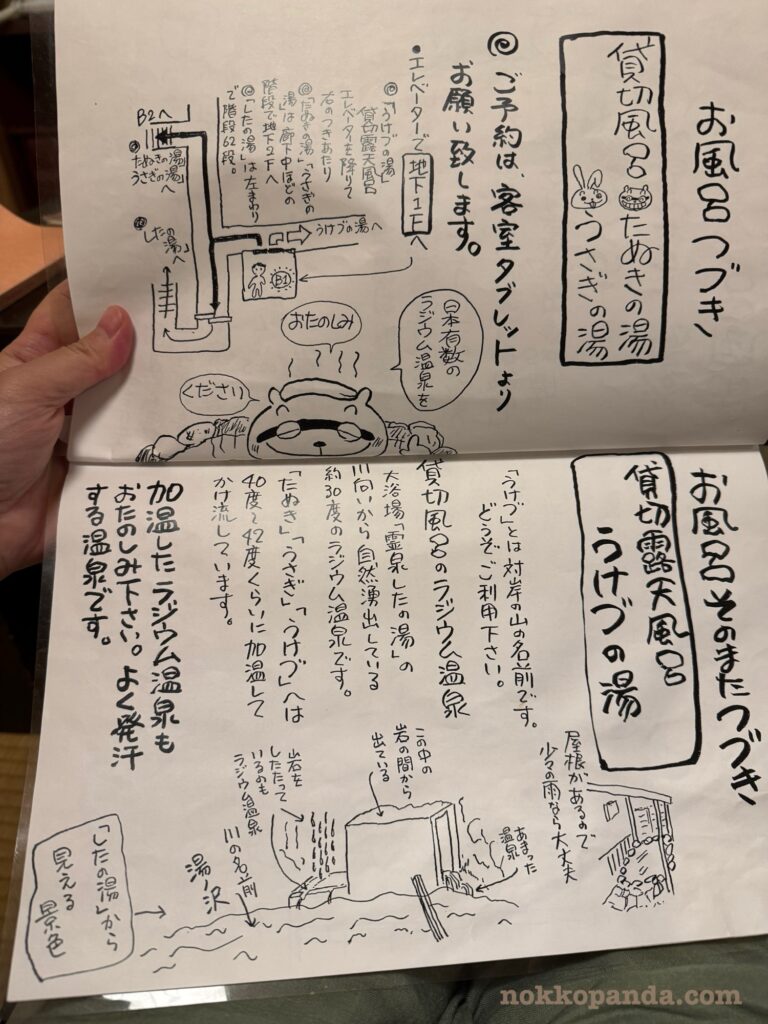 お風呂つづき
貸切風呂 たぬきの湯
うさぎの湯
ご予約は、客室タブレットより
お願い致します。
•エレベーターで 地下1F へ
「うけづの湯」
貸切露天風呂
エレベーターを降りて
右のつきあたり
「たぬきの湯」「うさぎの
湯」は廊下中ほどの
階段で地下2Fへ
「したの湯」は左まわり
で階段62段。
B2へ
たぬきの湯
うさぎの湯
へ
「したの湯」
へ
うけづの湯へ
B1
日本有数の
ラジウム温泉を
おたのしみ
ください
お風呂そのまたつづき
貸切露天風呂
うけづの湯
「うけづ」とは対岸の山の名前です。
どうぞご利用下さい。
貸切風呂のラジウム温泉
大浴場「霊泉したの湯」の
川向いから自然湧出している
約30度のラジウム温泉です。
「たぬき」「うさぎ」「うけづ」へは
40度〜42度くらいに加温して
かけ流しています。
加温したラジウム温泉も
おたのしみ下さい。よく発汗
する温泉です。
屋根があるので
少々の雨なら大丈夫
あまった
温泉
この中の
岩の間から
出ている
岩を
したたって
いるのも
ラジウム温泉
川の名前
湯ノ沢
「したの湯」から
見える
景色
nokkopanda.com